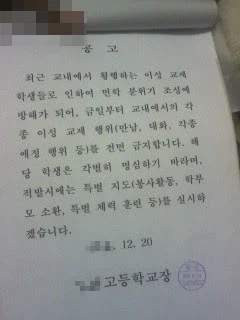 공 고
최근 교내에서 횡행하는 이성 교제
학생들로 인하여 면학 분위기 조성에
방해가 되어, 금일부터 교내에서의 각
종 이성 교제 행위(만남, 대화, 각종
애정 행위 등)를 전면 금지합니다. 해
당 학생은 각별히 명심하기 바라며,
적발시에는 특별 지도(봉사활동, 학부
모 소환, 특별 체력 훈련 등)를 실시하
겠습니다.
. 12. 20
고등학교장